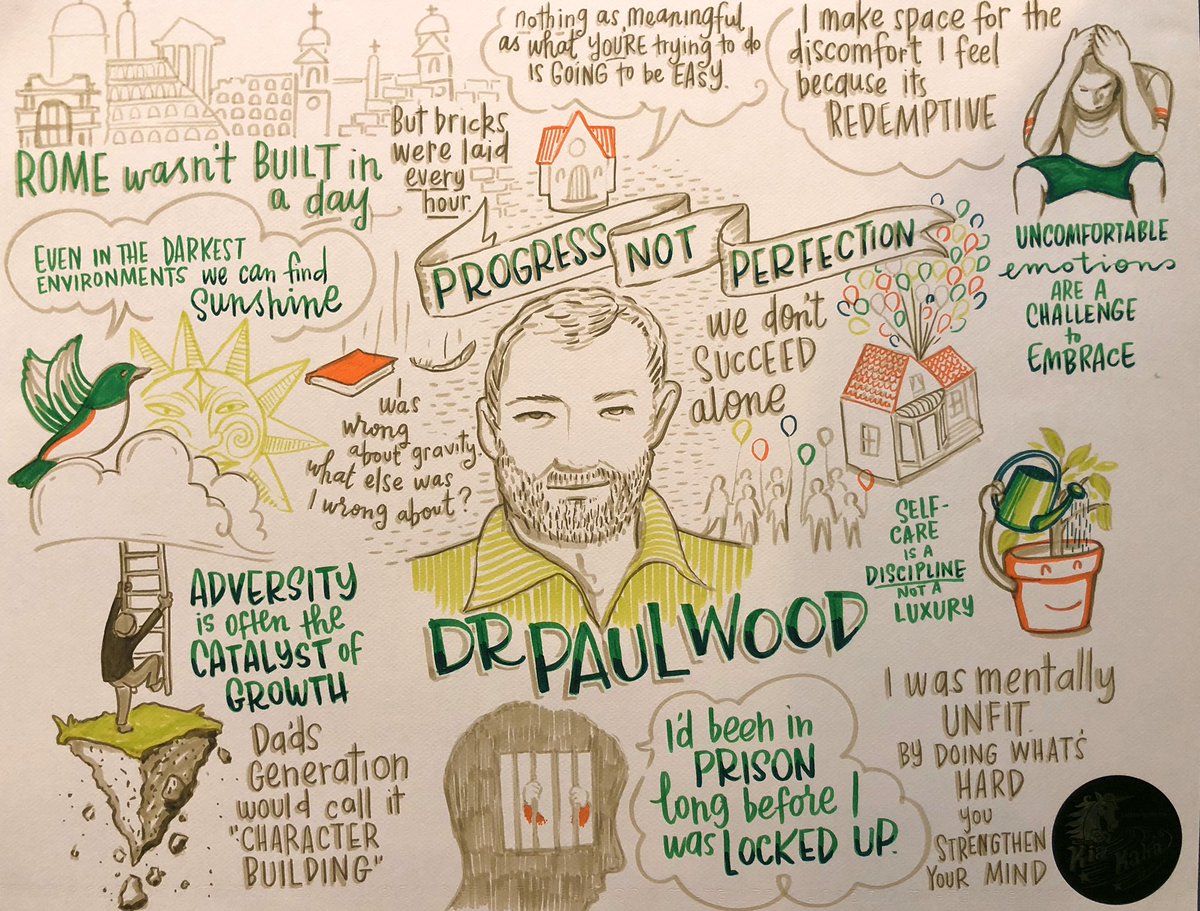 ROME wasn't BUILT in
a day
But bricks
were laid
every
hour
nothing as meaningful
as what YOU'RE trying to do
is GOING to be EASY.
I make space for the
discomfort I feel
because its
REDEMPTIVE
UNCOMFORTABLE
emotions
ARE A
CHALLENGE
to
EMBRACE
EVEN IN THE DARKEST
ENVIRONMENTS we can find
sunshine
PROGRESS NOT PERFECTION
we don't
SUCCEED
alone
I was
wrong
about gravity.
what else was
I wrong about?
SELF-
CARE
IS A
DISCIPLINE
NOT A
LUXURY
DR PAUL WOOD
ADVERSITY
is often the
CATALYST of
GROWTH
Dad's
Generation
would call it
"CHARACTER
BUILDING"
I'd been in
PRISON
long before I
was LOCKED UP.
I was mentally
UNFIT.
BY DOING WHAT'S
HARD
you
STRENGTHEN
YOUR MIND
Kia Kaha